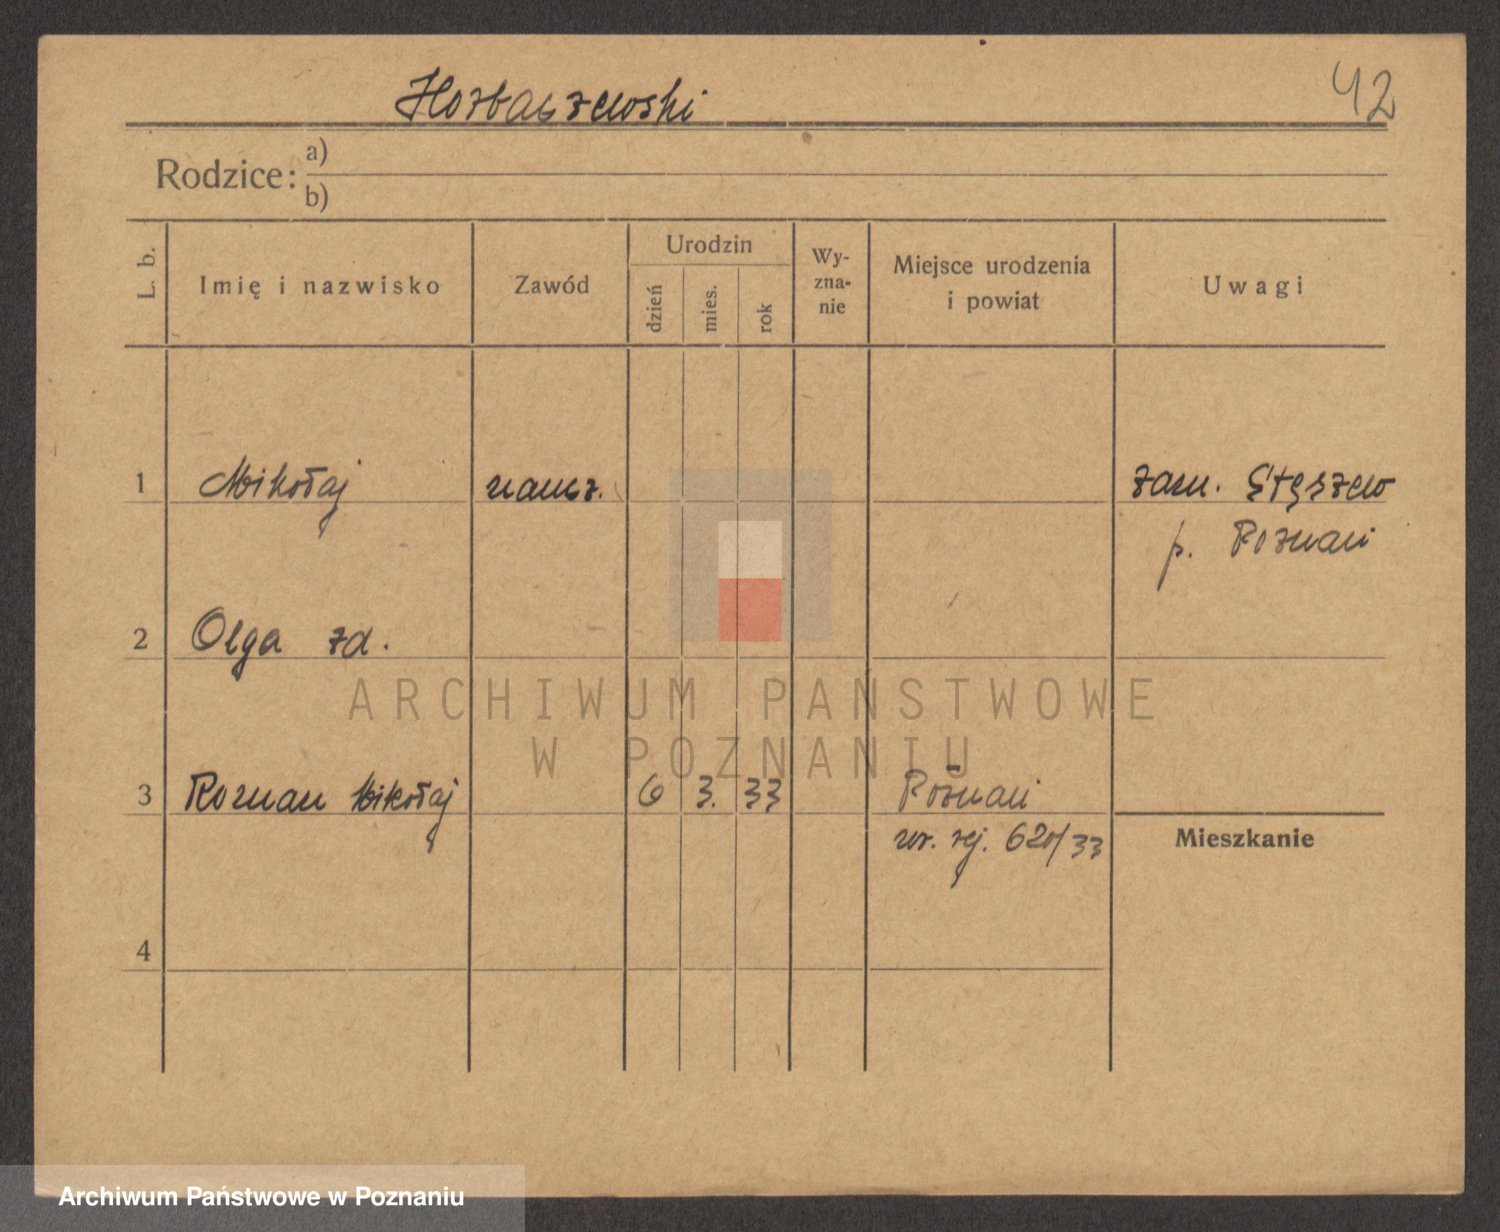 Horbaczewski
42
Rodzice: a)
b)
L. b.
Imię i nazwisko
Zawód
Urodzin
dzień
mies.
rok
Wy-
zna-
nie
Miejsce urodzenia
i powiat
Uwagi
1 Mikołaj naucz. zam. Stęszew
p. Poznań
2 Olga zd.
ARCHIWUM PAŃSTWOWE
W POZNANIU
3 Roman Mikołaj 6 3. 33 Poznań
nr. rej. 620/33
Mieszkanie
4
Archiwum Państwowe w Poznaniu